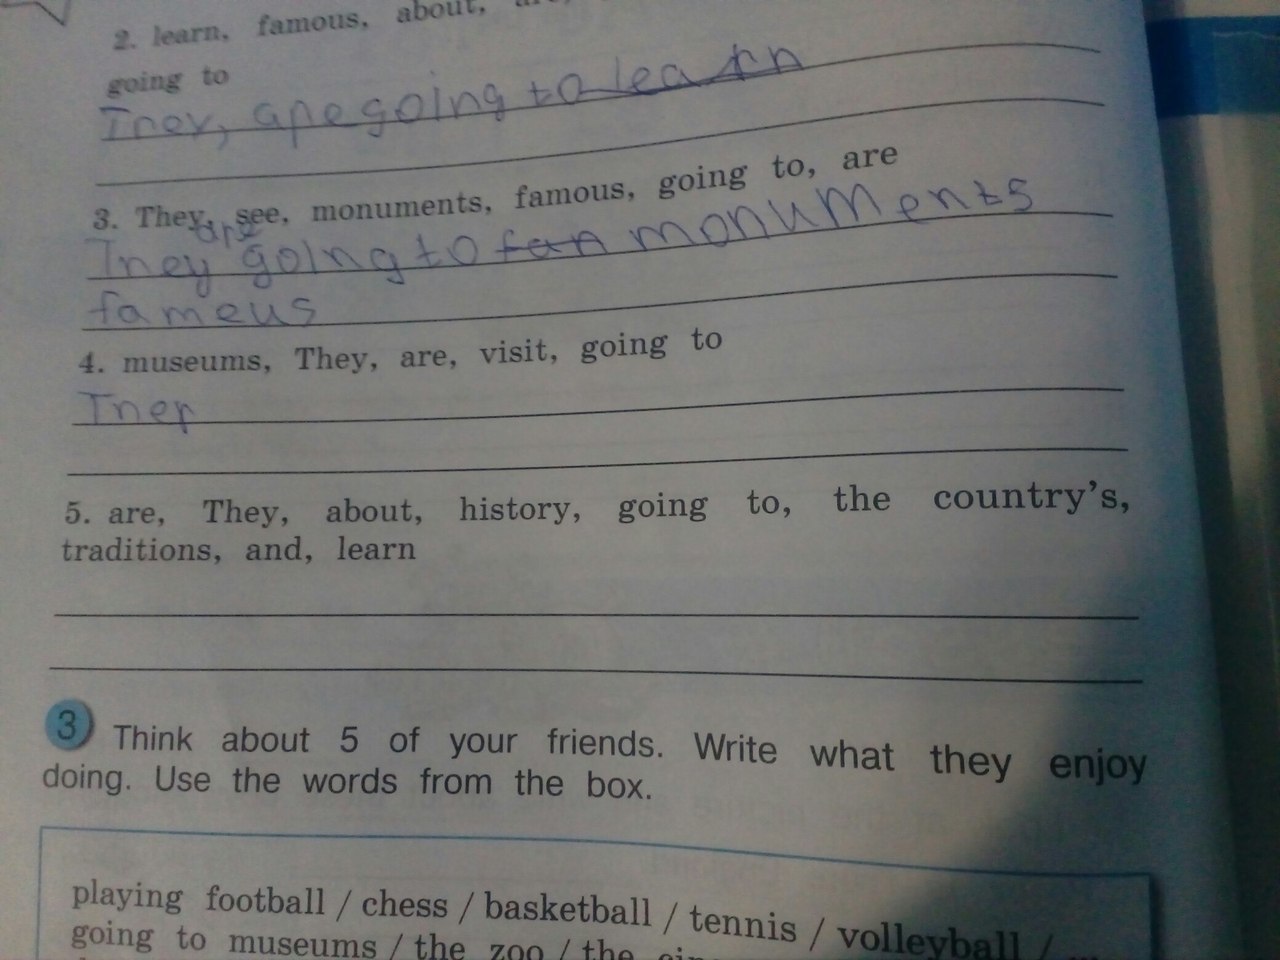 2. learn, famous, about,
going to
They, apegoing to learn
3. They, see, monuments, famous, going to, are
are
Iney going to fan monuments
fameus
4. museums, They, are, visit, going to
Iner
5. are, They, about, history, going to, the country's,
traditions, and, learn
3 Think about 5 of your friends. Write what they enjoy
doing. Use the words from the box.
playing football / chess / basketball / tennis / volleyball /
going to museums / the zoo / the